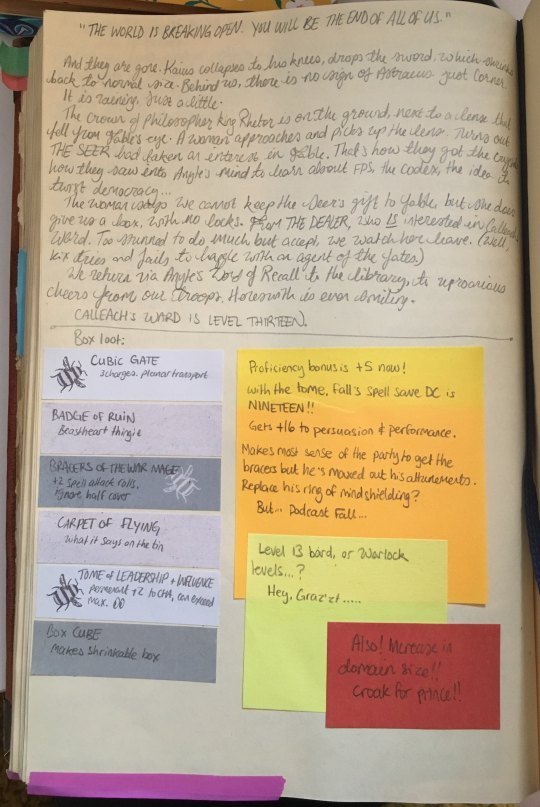 "THE WORLD IS BREAKING OPEN. YOU WILL BE THE END OF ALL OF US."
And they are gone. Kaius collapses to his knees, drops the sword, which shrinks
back to normal size. Behind us, there is no sign of Astraeus just Corner.
It is raining, just a little.
The Crown of philosopher king Rhetor is on the ground, next to a lense that
fell from Fable's eye. A woman approaches and picks up the lens. Turns out
THE SEER had taken an interest in Fable. That's how they got the
how they saw into Angle's mind to learn about FPS, the Codex, the idea
twist democracy...
The woman says we cannot keep the Seer's gift to Fable, but she does
give us a box, with no locks. From THE DEALER, who IS interested in Calleach's
Ward. Too stunned to do much but accept, we watch her leave. (Well,
Kix tries and fails to haggle with an agent of the fates)
We return via Angle's Word of Recall to the library, to uproarious
cheers from our troops. is even smiling.
CALLEACH'S WARD IS LEVEL THIRTEEN.
Box loot:
CUBIC GATE
3 charges. planar transport
BADGE OF RUIN
Beastheart thingie
BRACERS OF THE WAR MAGE
+2 spell attack rolls,
ignore half cover
CARPET OF FLYING
what it says on the tin
TOME OF LEADERSHIP + INFLUENCE
permenant +2 to CHA, can exceed
max.
BOX CUBE
Makes shrinkable box
Proficiency bonus is +5 now!
With the tome, Fall's spell save DC is
NINETEEN!!
Gets +16 to persuasion & performance.
Makes most sense of the party to get the
bracers but he's maxed out his attunements.
Replace his ring of mindshielding?
But... Podcast Fall...
Level 13 bard, or Warlock
levels...?
Hey, Graz'zt.....
Also! Increase in
domain size!!
Croak for prince!!